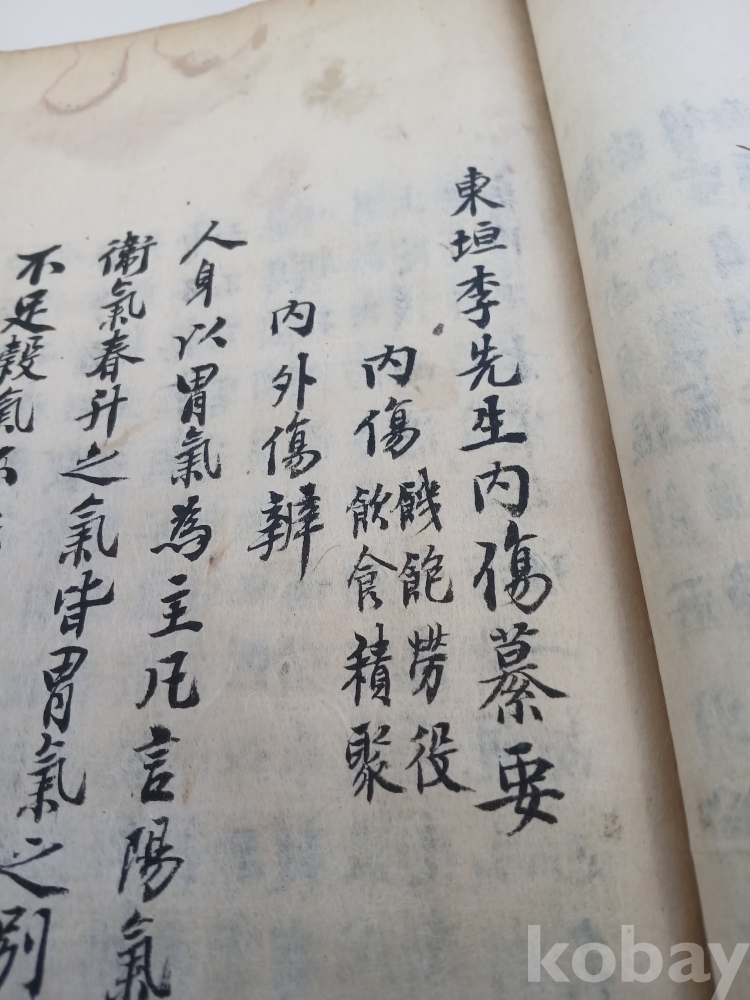 東垣李先生内傷纂要
内傷
饑飽勞役
飲食積聚
内外傷辨
人身以胃氣為主凡言陽氣
衛氣春升之氣皆胃氣之別
不足穀氣不
kobay